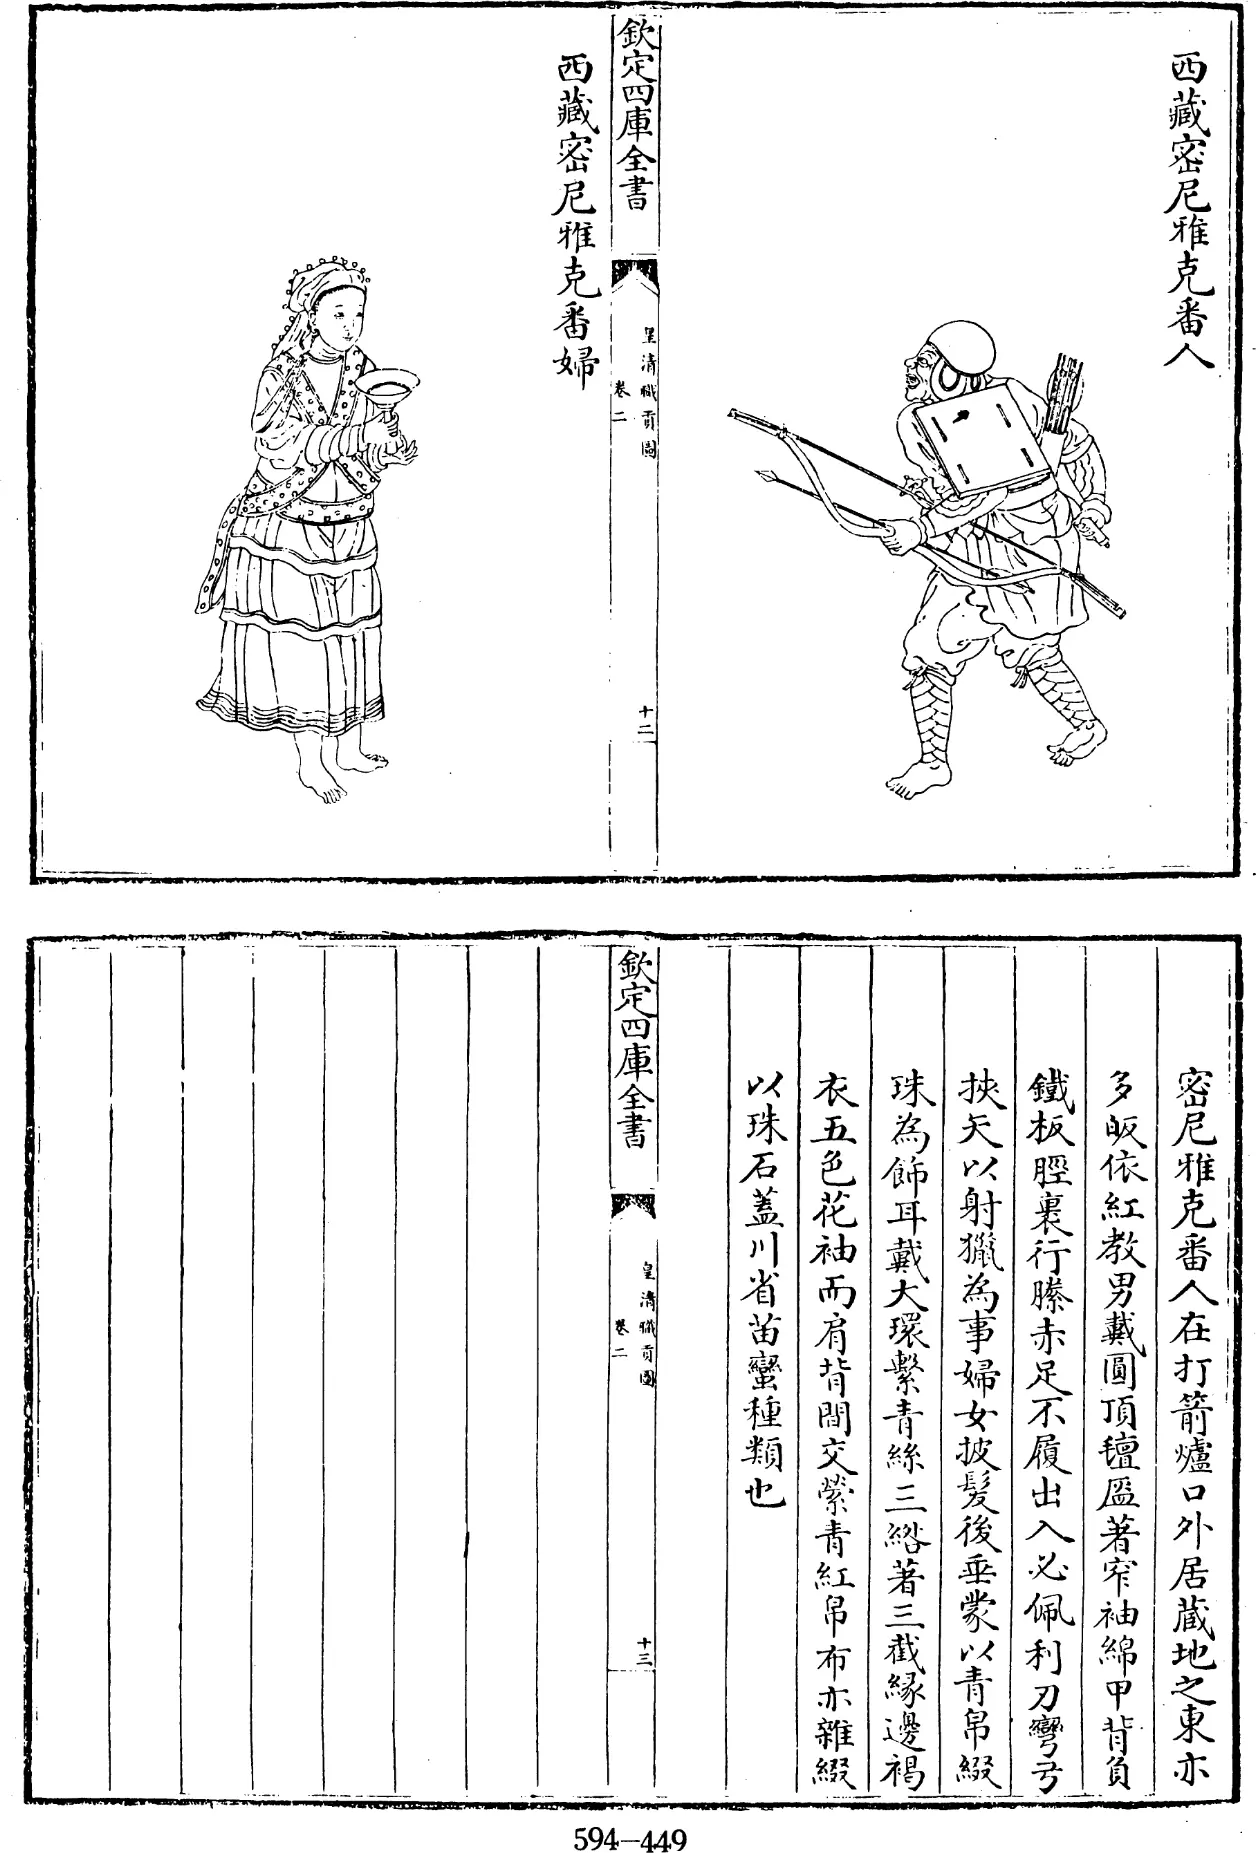 西藏密尼雅克番人
欽定四庫全書
皇清職貢圖
卷二
十二
西藏密尼雅克番婦
密尼雅克番人在打箭爐口外居藏地之東亦
多皈依紅教男戴圓頂氊盔著窄袖綿甲背負
鐵板脛裹行縢赤足不履出入必佩利刃彎弓
挾矢以射獵為事婦女披髮後垂蒙以青帛綴
珠為飾耳戴大環繫青絲三綹著三截緣邊褐
衣五色花袖而肩背間交縈青紅帛布亦雜綴
以珠石蓋川省苗蠻種類也
欽定四庫全書
皇清職貢圖
卷二
十三
594-449